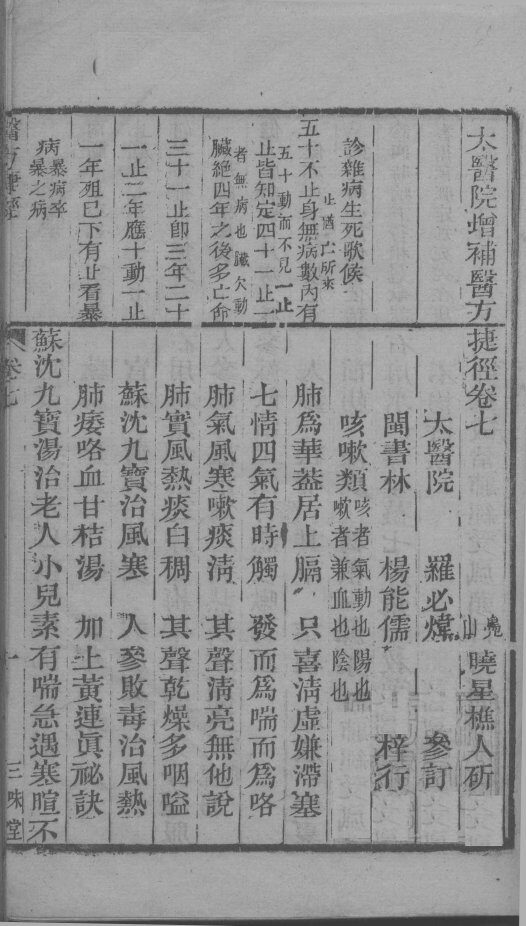 太醫院增補醫方捷徑卷七
曉星樵人斫
太醫院 羅必煒 參訂
閩書林 楊能儒 梓行
診雜病生死歌候
五十不止身無病數內有
止皆知定四十一止一
五十動而不見一止
者無病也臟欠動
臟絕四年之後多亡命
三十一止即三年二十
一止二年應十動一止
一年殂已下有止看暴
病暴病卒
暴之病
咳嗽類咳者氣動也陽也
嗽者兼血也陰也
肺為華蓋居上膈 只喜淸虛嫌滯塞
七情四氣有時觸 發而為喘而為咯
肺氣風寒嗽痰淸 其聲淸亮無他說
肺實風熱痰白稠 其聲乾燥多咽嗌
蘇沈九寶治風寒 人參敗毒治風熱
肺痿咯血甘桔湯 加上黃連眞祕訣
蘇沈九寶湯治老人小兒素有喘急遇寒暄不
醫方捷徑 卷七 一 三味堂